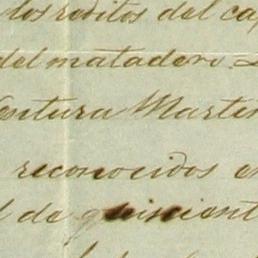 los reditos del ca
del matadero.
entura Martin
reconocidos en
l de quinient